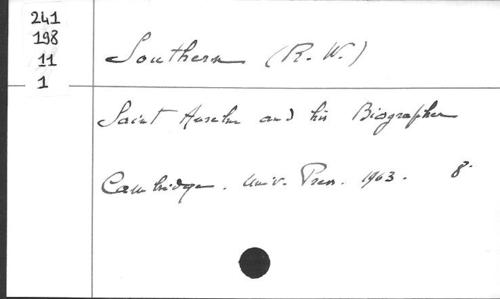 241
198
11
1
Southern (R. W.)
Saint Anselm and his Biographer
Cambridge. Univ. Press. 1963. 8°